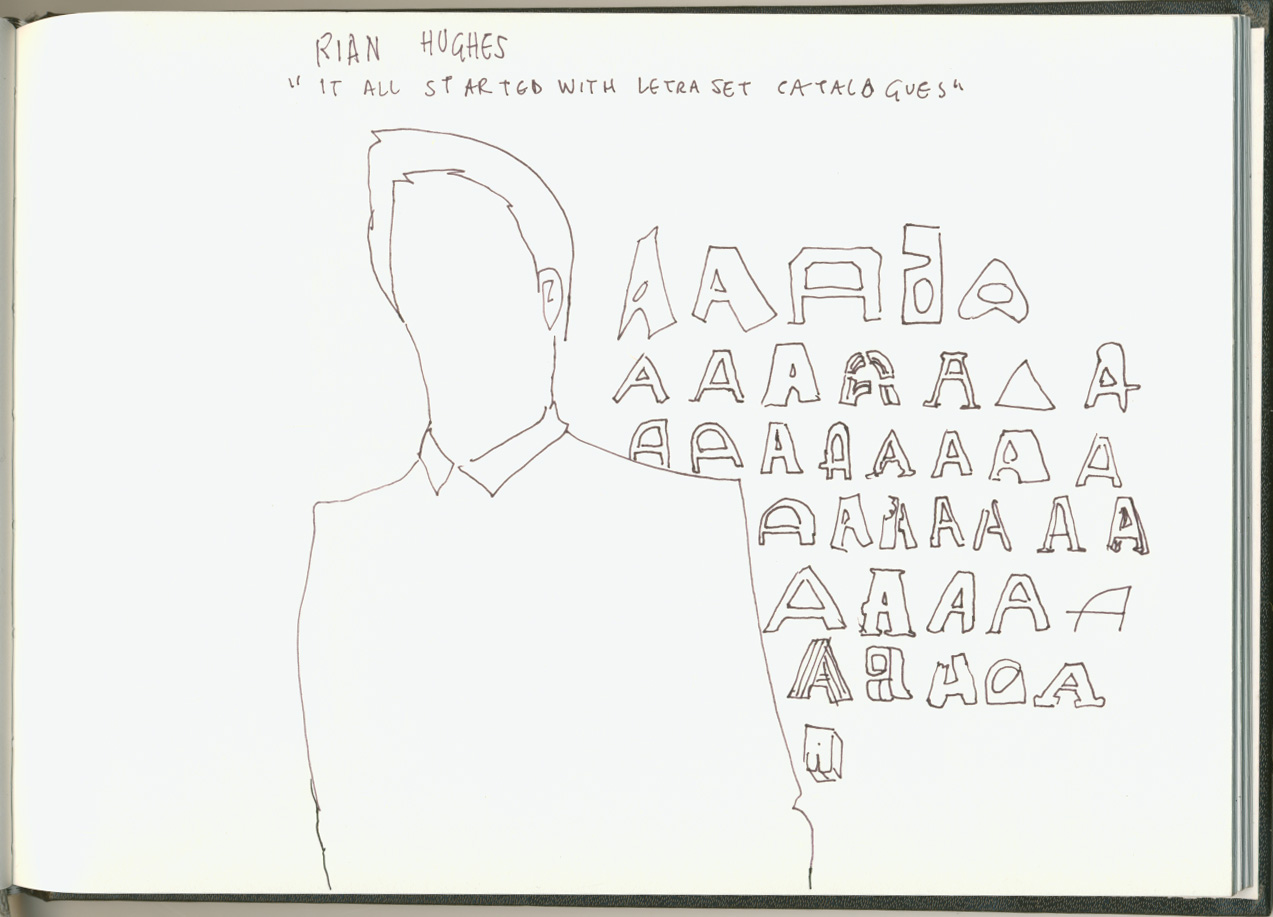 RIAN HUGHES
"IT ALL STARTED WITH LETRASET CATALOGUES"
A A A a A
A A A A A A A
A A A A A A A A
A A A A A A A
A A A A A
A a A a A
A